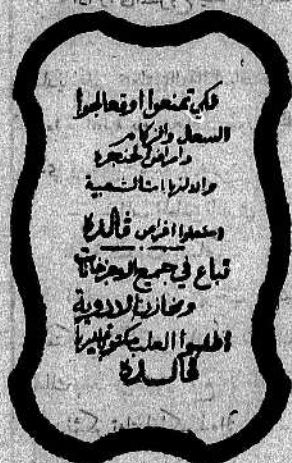 لكي تمنعوا او تعالجوا
السعال والزكام
وامراض الحنجرة
والالتهابات الشعبية
استعملوا اقراص فالدا
تباع في جميع الاجزخانات
ومخازن الادوية
اطلبوا العلب مكتوب عليها
فالدا